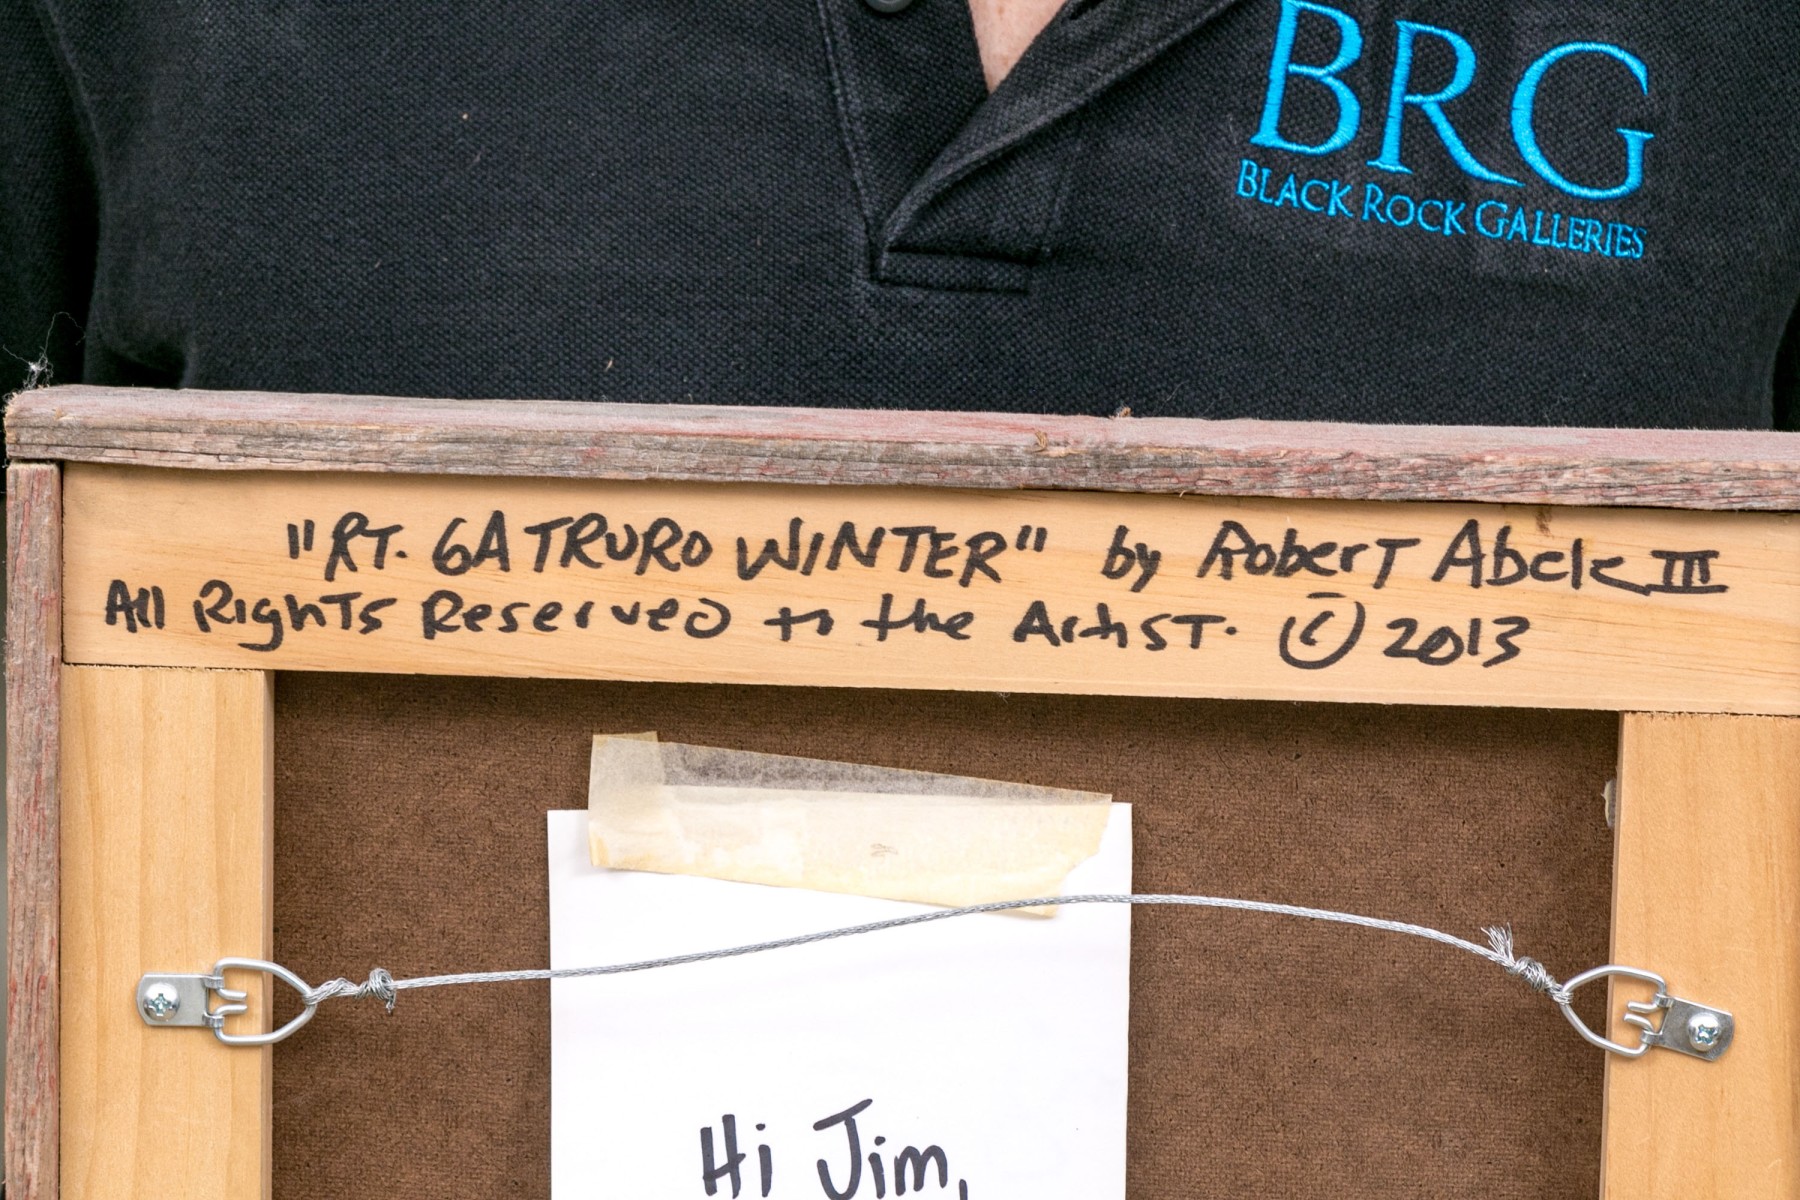 BRG
BLACK ROCK GALLERIES
"RT. 6A TRURO WINTER" by Robert Abele III
All Rights Reserved to the Artist. © 2013
Hi Jim,